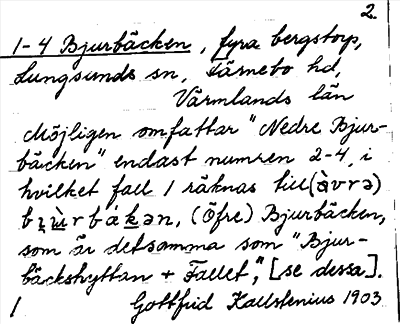 2.
1-4 Bjurbäcken, fyra bergstorp,
Lungsunds sn, Färnebo hd,
Värmlands län
Möjligen omfattar "Nedre Bjur-
bäcken" endast numren 2-4, i
hvilket fall 1 räknas till (àvrə)
bjùrbákən, (Öfre) Bjurbäcken,
som är detsamma som "Bjur-
bäckshyttan + Fallet", [se dessa].
1 Gottfrid Kallstenius 1903